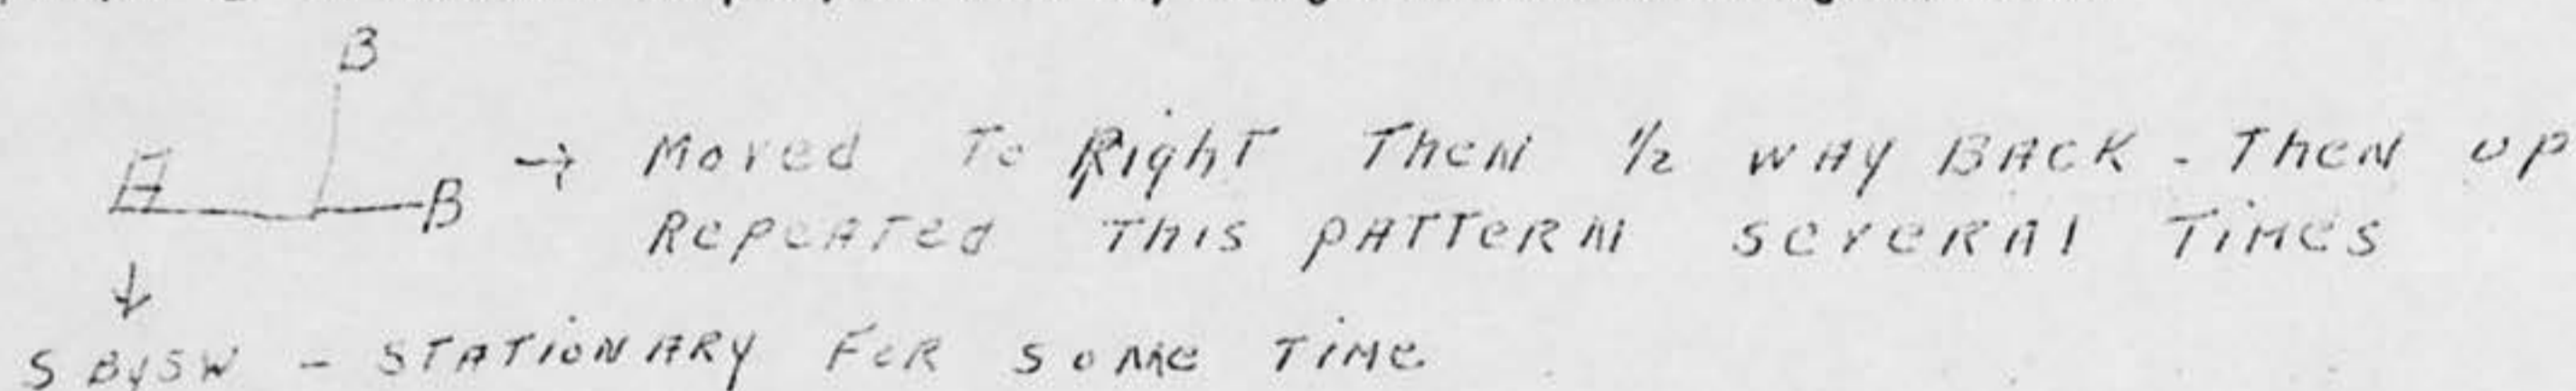 B
A B → Moved To Right Then 1/2 WAY BACK - Then UP
Repeated This pattern several Times
↓
S By SW - STATIONARY FOR SOME TIME